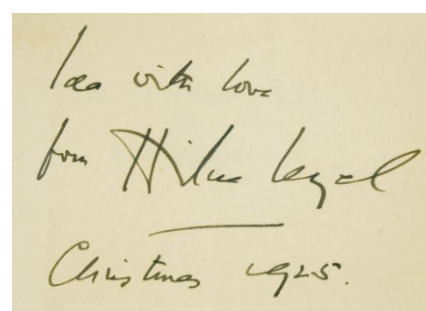 Ida with love
from Hilda Leyel
Christmas 1925.